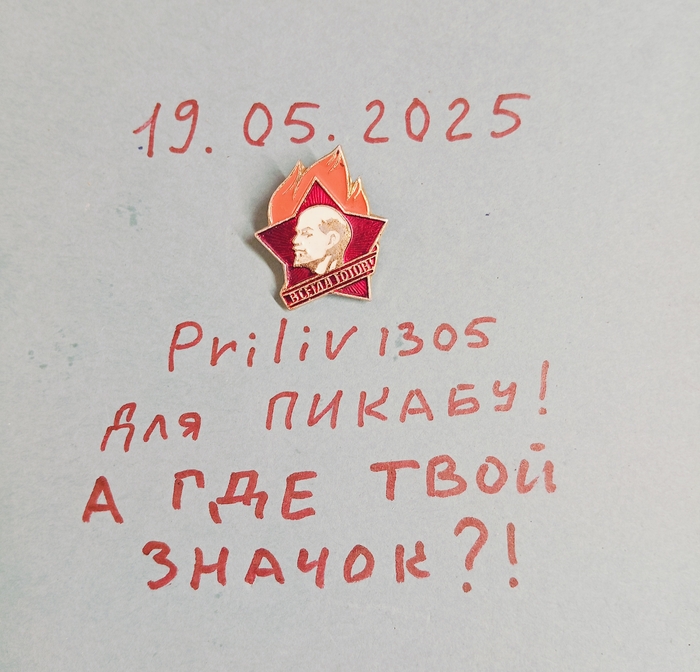 19.05.2025
ВСЕГДА ГОТОВ!
Priliv1305
для ПИКАБУ!
А ГДЕ ТВОЙ
ЗНАЧОК?!